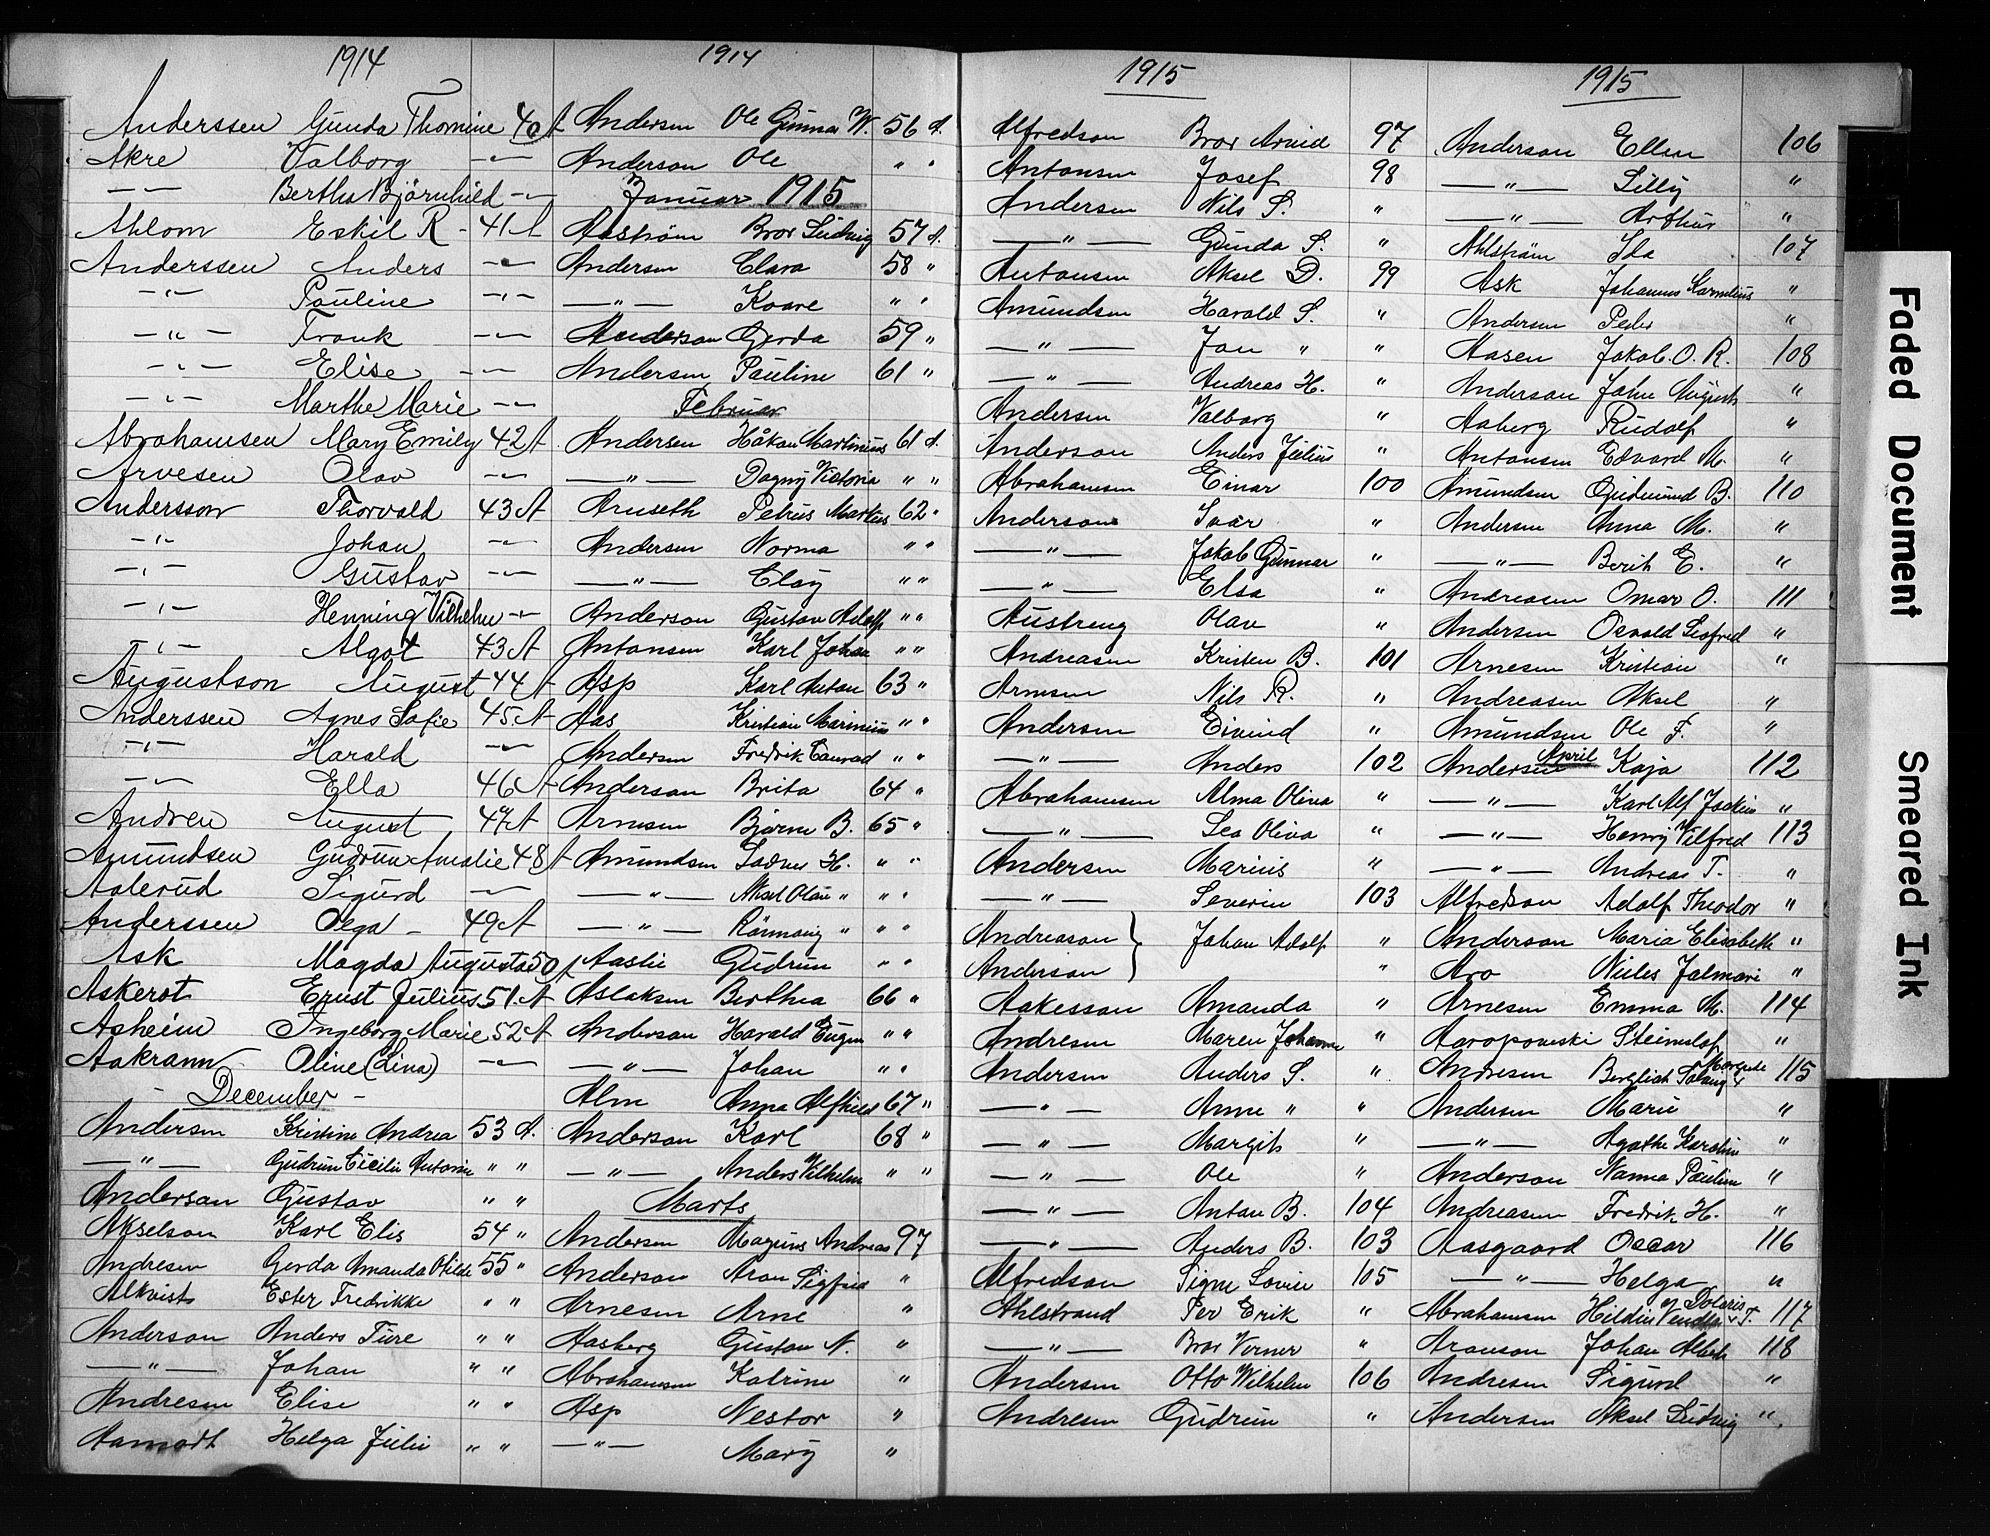 1914
Anderssen Gunda Thomine 40 A
Akre Valborg -"-
-"- Bertha Bjørnhild -"-
Ahlom Eskil R - 41 A
Anderssen Anders -"-
-"- Pauline -"-
-"- Frank -"-
-"- Elise -"-
-"- Marthe Marie -"-
Abrahamsen Mary Emily 42 A
Arvesen Olav -"-
Andersson Thorvald 43 A
-"- Johan -"-
-"- Gustav -"-
-"- Henning Vilhelm -"-
-"- Algot 43 A
Augustson August 44 A
Anderssen Agnes Sofie 45 A
-"- Harald -"-
-"- Ella 46 A
Andren August 47 A
Amundsen Gudrun Amalie 48 A
Aalerud Sigurd -"-
Anderssen Olga - 49 A
Ask Magda Augusta 50 A
Askerot Ernst Julius 51 A
Asheim Ingeborg Marie 52 A
Aakrann Oline (Lina) -"-
December -
Andersen Kristine Andrea 53 A.
-"- Gudrun Cecilie Antonie " "
Anderson Gustav " "
Akselson Karl Elis 54 "
Andresen Gerda Amanda Otilde 55 "
Alkvist Ester Fredrikke " "
Anderson Anders Ture " "
-"- Johan " "
Andresen Elise " "
Aamodt Helga Julie " "
1914
Andersen Ole Gunnar W. 56 A.
Anderson Ole " "
Januar 1915
Aastrøm Bror Ludvig 57 A.
Andersen Clara 58 "
-"- Kaare " "
Anderson Gerda 59 "
Andersen Pauline 61 "
Februar
Andersen Håkan Martinius 61 A.
-"- Dagny Victoria " "
Aruseth Petrus Markus 62 "
Andersen Norma " "
-"- Clay " "
Anderson Gustav Adolf " "
Antonsen Karl Johan " "
Asp Karl Anton 63 "
Aas Kristian Marinius " "
Andersen Fredrik Conrad " "
Anderson Brita 64 "
Arnesen Bjarne B. 65 "
Amundsen H. " "
-"- Aksel Olav " " "
-"- " " "
Aaslie Gudrun " "
Aslaksen Berthea 66 "
Anderson Harald Eugen " "
-"- Johan " "
Alm Anna Alfhild 67 "
Anderson Karl 68 "
-"- Anders Vilhelm " "
Marts
Andersen Magnus Andreas 97
Anderson Aron Sigfrid "
Arnesen Arne "
Aasberg Gustav N. "
Abrahamsen Katrine "
Asp Nestor "
-"- Mary "
1915
Alfredson Bror Arvid 97
Antonsen Josef 98
Andersen Nils S. "
-"- Gunda S. "
Antonsen Aksel D. 99
Amundsen Harald S. "
-"- Jon " "
-"- Andreas H. "
Andersen Valborg "
Anderson Anders Julius "
Abrahamsen Einar 100
Anderson Ivar "
-"- Jakob Gunnar "
-"- Elsa "
Austreng Olav "
Andreasen Kristen B. 101
Arnesen Nils R. "
Andersen Eivind "
-"- Anders 102
Abrahamsen Alma Oliva "
-"- Lea Oliva "
Andersen Marius "
-"- Severin 103
Andreason } Johan Adolf "
Anderson } "
Aakesson Amanda "
Andresen Maren Johanne "
Andersen Anders S. "
-"- Anne " "
-"- Margit "
-"- Ole "
-"- Anton B. 104
-"- Anders B. 103
Alfredson Signe Lovise 105
Ahlstrand Per Erik "
-"- Bror Verner "
Andersen Otto Wilhelm 106
Andresen Gudrun "
1915
Anderson Ellen 106
-"- Lilly "
-"- Arthur "
Ahlstrøm Ida 107
Ask Johannes Kornelius "
Andersen Peder "
Aasen Jakob. O. R. 108
Anderson John August "
Aaberg Rudolf "
Antonsen Edvard M. "
Amundsen Gudmund B. 110
Andersen Anna M. "
-"- Berit E. "
Andreasen Omar O. 111
Andersen Osvald Leofred "
Arnesen Kristian "
Andreasen Aksel "
Amundsen Ole F. "
April
Andersen Kaja 112
-"- Karl Alf Joakim "
-"- Henry Vilfred 113
-"- Andreas T. "
Alfredson Adolf Theodor "
Anderson Maria Elisabeth "
Aro Jalmari "
Arnesen Emma M. 114
Aaropowski "
Andresen Bergliot Solveig Margrete 115
Andersen Marie "
-"- Agathe Karoline "
Anderson Nanna Pauline "
Andreasen Fredrik H. "
Aasgaard Oscar 116
-"- Helga "
Abrahamsen Hildur Vendla og Dolaris T. 117
Aronson Johan Albert 118
Andresen Sigurd "
Andersen Aksel Ludvig "
Faded Document
Smeared Ink